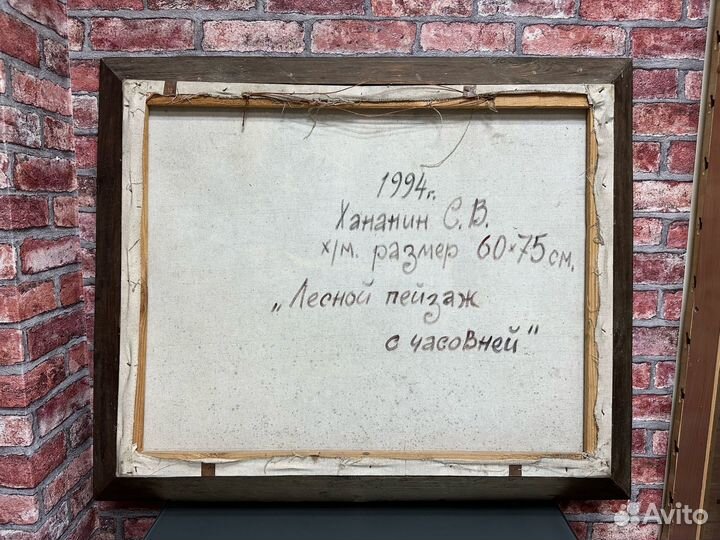 1994г.
Хананин С.В.
х/м. размер 60×75см.
„Лесной пейзаж
с часовней"
Avito